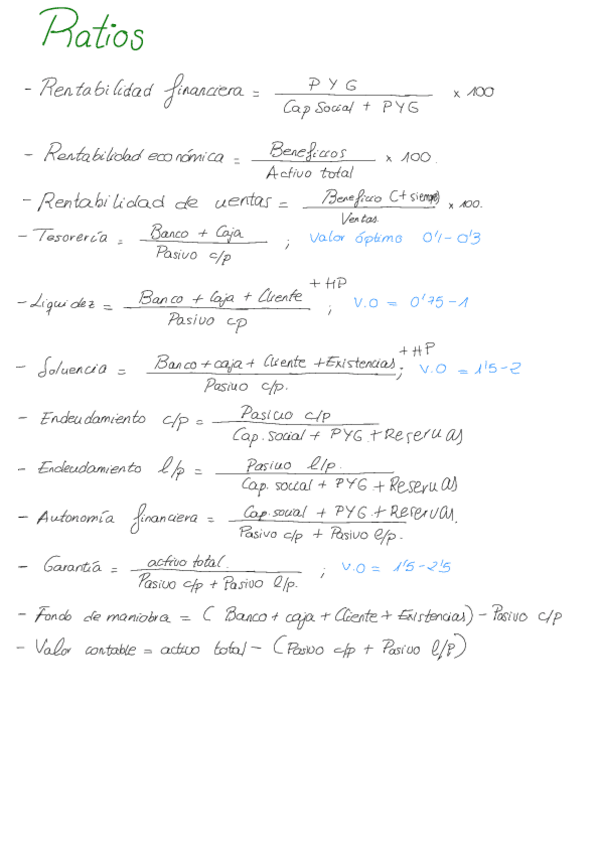 Ratios
- Rentabilidad financiera = PYG / Cap Social + PYG x 100
- Rentabilidad económica = Beneficios / Activo total x 100.
- Rentabilidad de ventas = Beneficio (+ siempre) / Ventas x 100.
- Tesorería = Banco + Caja / Pasivo c/p ; Valor óptimo 0'1-0'3
- Liquidez = Banco + Caja + Cliente + HP / Pasivo cp ; V.O = 0'75-1
- Solvencia = Banco + caja + Cliente + Existencias + HP / Pasivo c/p. ; V.O = 1'5-2
- Endeudamiento c/p = Pasivo c/p / Cap. social + PYG + Reservas
- Endeudamiento l/p = Pasivo l/p. / Cap. social + PYG + Reservas
- Autonomía financiera = Cap. social + PYG + Reservas. / Pasivo c/p + Pasivo l/p.
- Garantía = activo total. / Pasivo c/p + Pasivo l/p. ; V.O = 1'5-2'5
- Fondo de maniobra = ( Banco + caja + Cliente + Existencias) - Pasivo c/p
- Valor contable = activo total - (Pasivo c/p + Pasivo l/p)